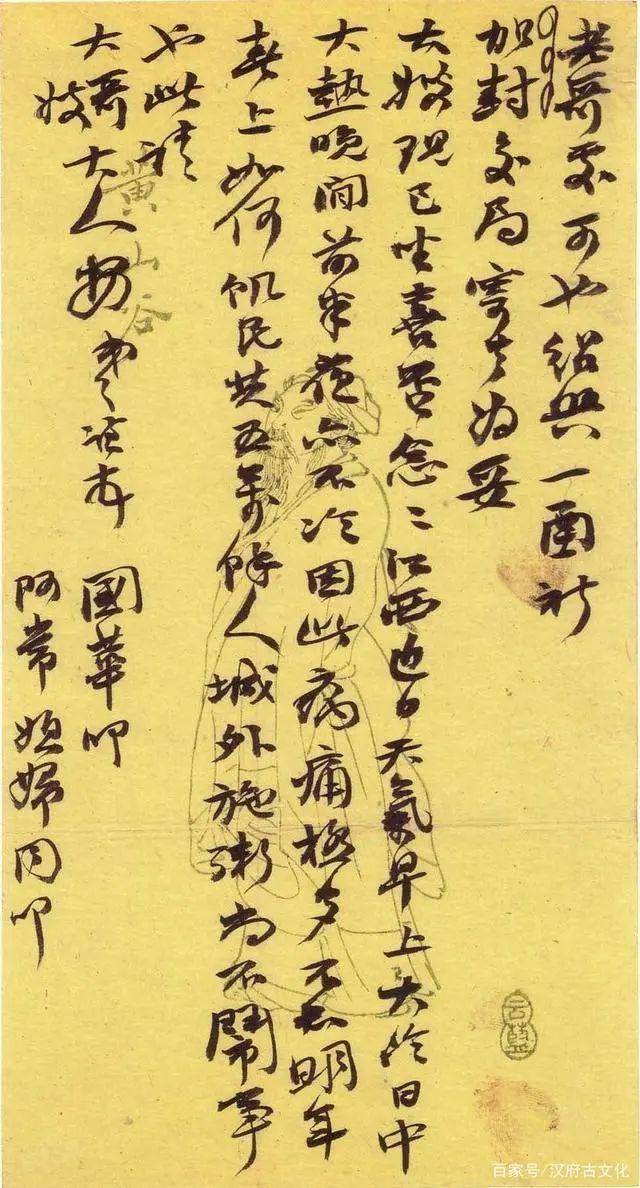 老哥處可也紹興一函祈
加封交局寄去為妥
大嫂現已坐喜否念〻江西近日天氣早上大冷日中
大熱晚間前半夜亦不冷因此病痛極多不知明年
春上如何飢民共五萬餘人城外施粥尚不鬧事
也此請
大哥大人安弟
嫂
國華叩
阿常婦同叩
黃山谷
云藍
百家号/汉府古文化